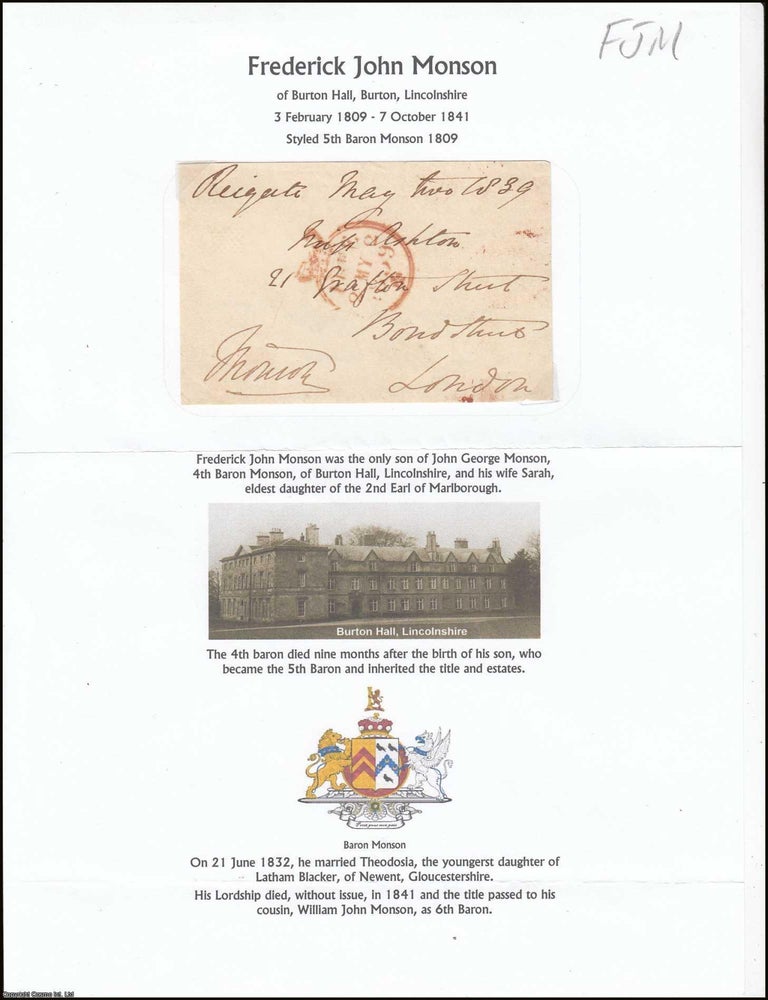 FJM
Frederick John Monson
of Burton Hall, Burton, Lincolnshire
3 February 1809 - 7 October 1841
Styled 5th Baron Monson 1809
Reigate May two 1839
Miss Ashton
21 Grafton Street
Bond Street
Monson
London
Frederick John Monson was the only son of John George Monson,
4th Baron Monson, of Burton Hall, Lincolnshire, and his wife Sarah,
eldest daughter of the 2nd Earl of Marlborough.
Burton Hall, Lincolnshire
The 4th baron died nine months after the birth of his son, who
became the 5th Baron and inherited the title and estates.
Baron Monson
On 21 June 1832, he married Theodosia, the youngerst daughter of
Latham Blacker, of Newent, Gloucestershire.
His Lordship died, without issue, in 1841 and the title passed to his
cousin, William John Monson, as 6th Baron.
Copyright Cosmo Int. Ltd